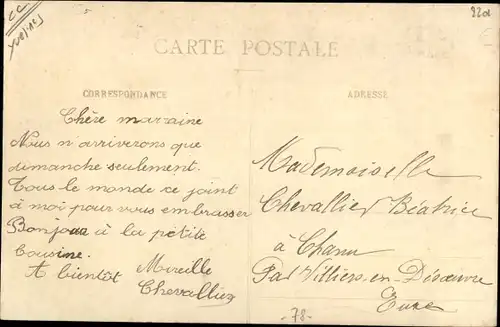 CC
Yvelines
CARTE POSTALE
CORRESPONDANCE
Chère marraine
Nous n arriverons que
dimanche seulement.
Tous le monde ce joint
à moi pour vous embrasser
Bonjour à la petite
Cousine.
A bientôt Mireille
Chevallier
ADRESSE
Mademoiselle
Chevallier Béatrice
à Chanu
Par Villiers-en-Désoeuvre
Eure
-78-